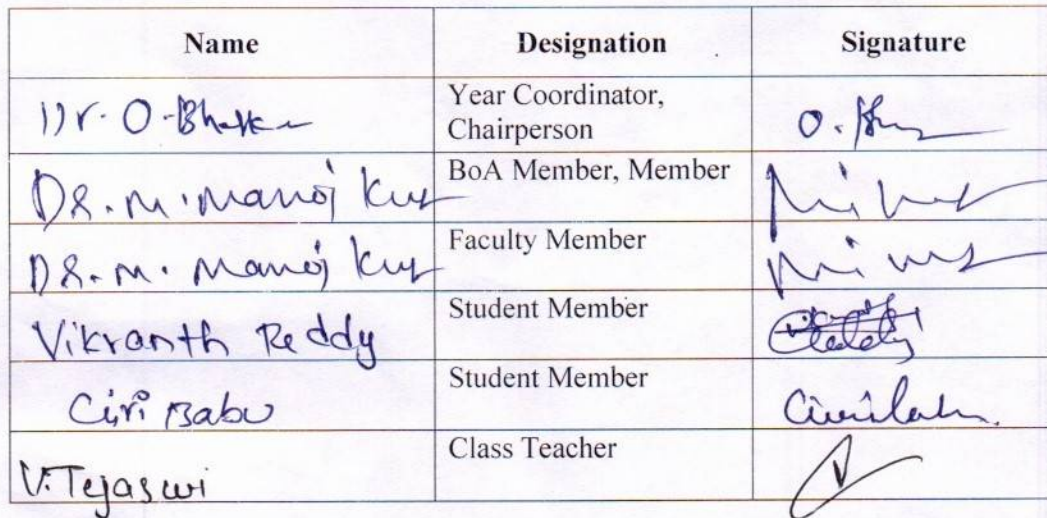 Name Designation Signature
Dr. O. Bhaskar Year Coordinator,
Chairperson
Dr. M. Manoj Kumar BoA Member, Member
Dr. M. Manoj Kumar Faculty Member
Vikranth Reddy Student Member
Ciri Babu Student Member
V. Tejaswi Class Teacher